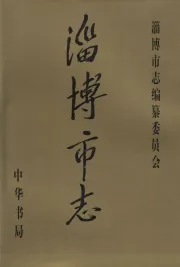 淄博市志编纂委员会
淄博市志
中华书局